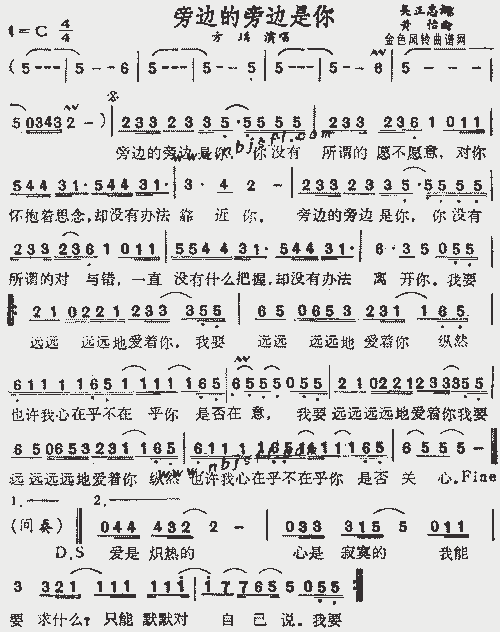 旁边的旁边是你
1=C 4/4
方 演唱
金色风铃曲谱网
(5---|5--6|5---|5--5|5--5|5--6|
5 03432-)|233 233 5·5555|233 236 1 011|
旁边的旁边是你,你没有 所谓的 愿不愿意,对你
544 31·544 31·|3·42-|233 233 5·5555|
怀抱着思念,却没有办法 靠 近 你。 旁边的旁边 是你,你没有
233 236 1 011|554431·544 31·|6·35 055|
所谓的对 与错,一直 没有什么把握,却没有办法 离 开你。我要
21 0221 233 355|65 0653 231 165|
远远 远远地爱着你,我要 远远 远远地 爱着你 纵然
6111 1165 1111 165|65555055|21 0221233355|
也许我心在乎不在 乎你 是否在 意, 我要 远远远远地爱着你我要
65 0653231 165|6111 1165111 1165|655 5-|
远远远远地爱着你 纵然 也许我心在乎不在乎你 是否 关 心。Fine
1. 2.
(间奏) 044 432 2-|033 315 5 011|
D.S 爱是 炽热的 心是 寂寞的 我能
3 321 111 111|177655 055:
要 求什么?只能 默默对 自 己 说。我要